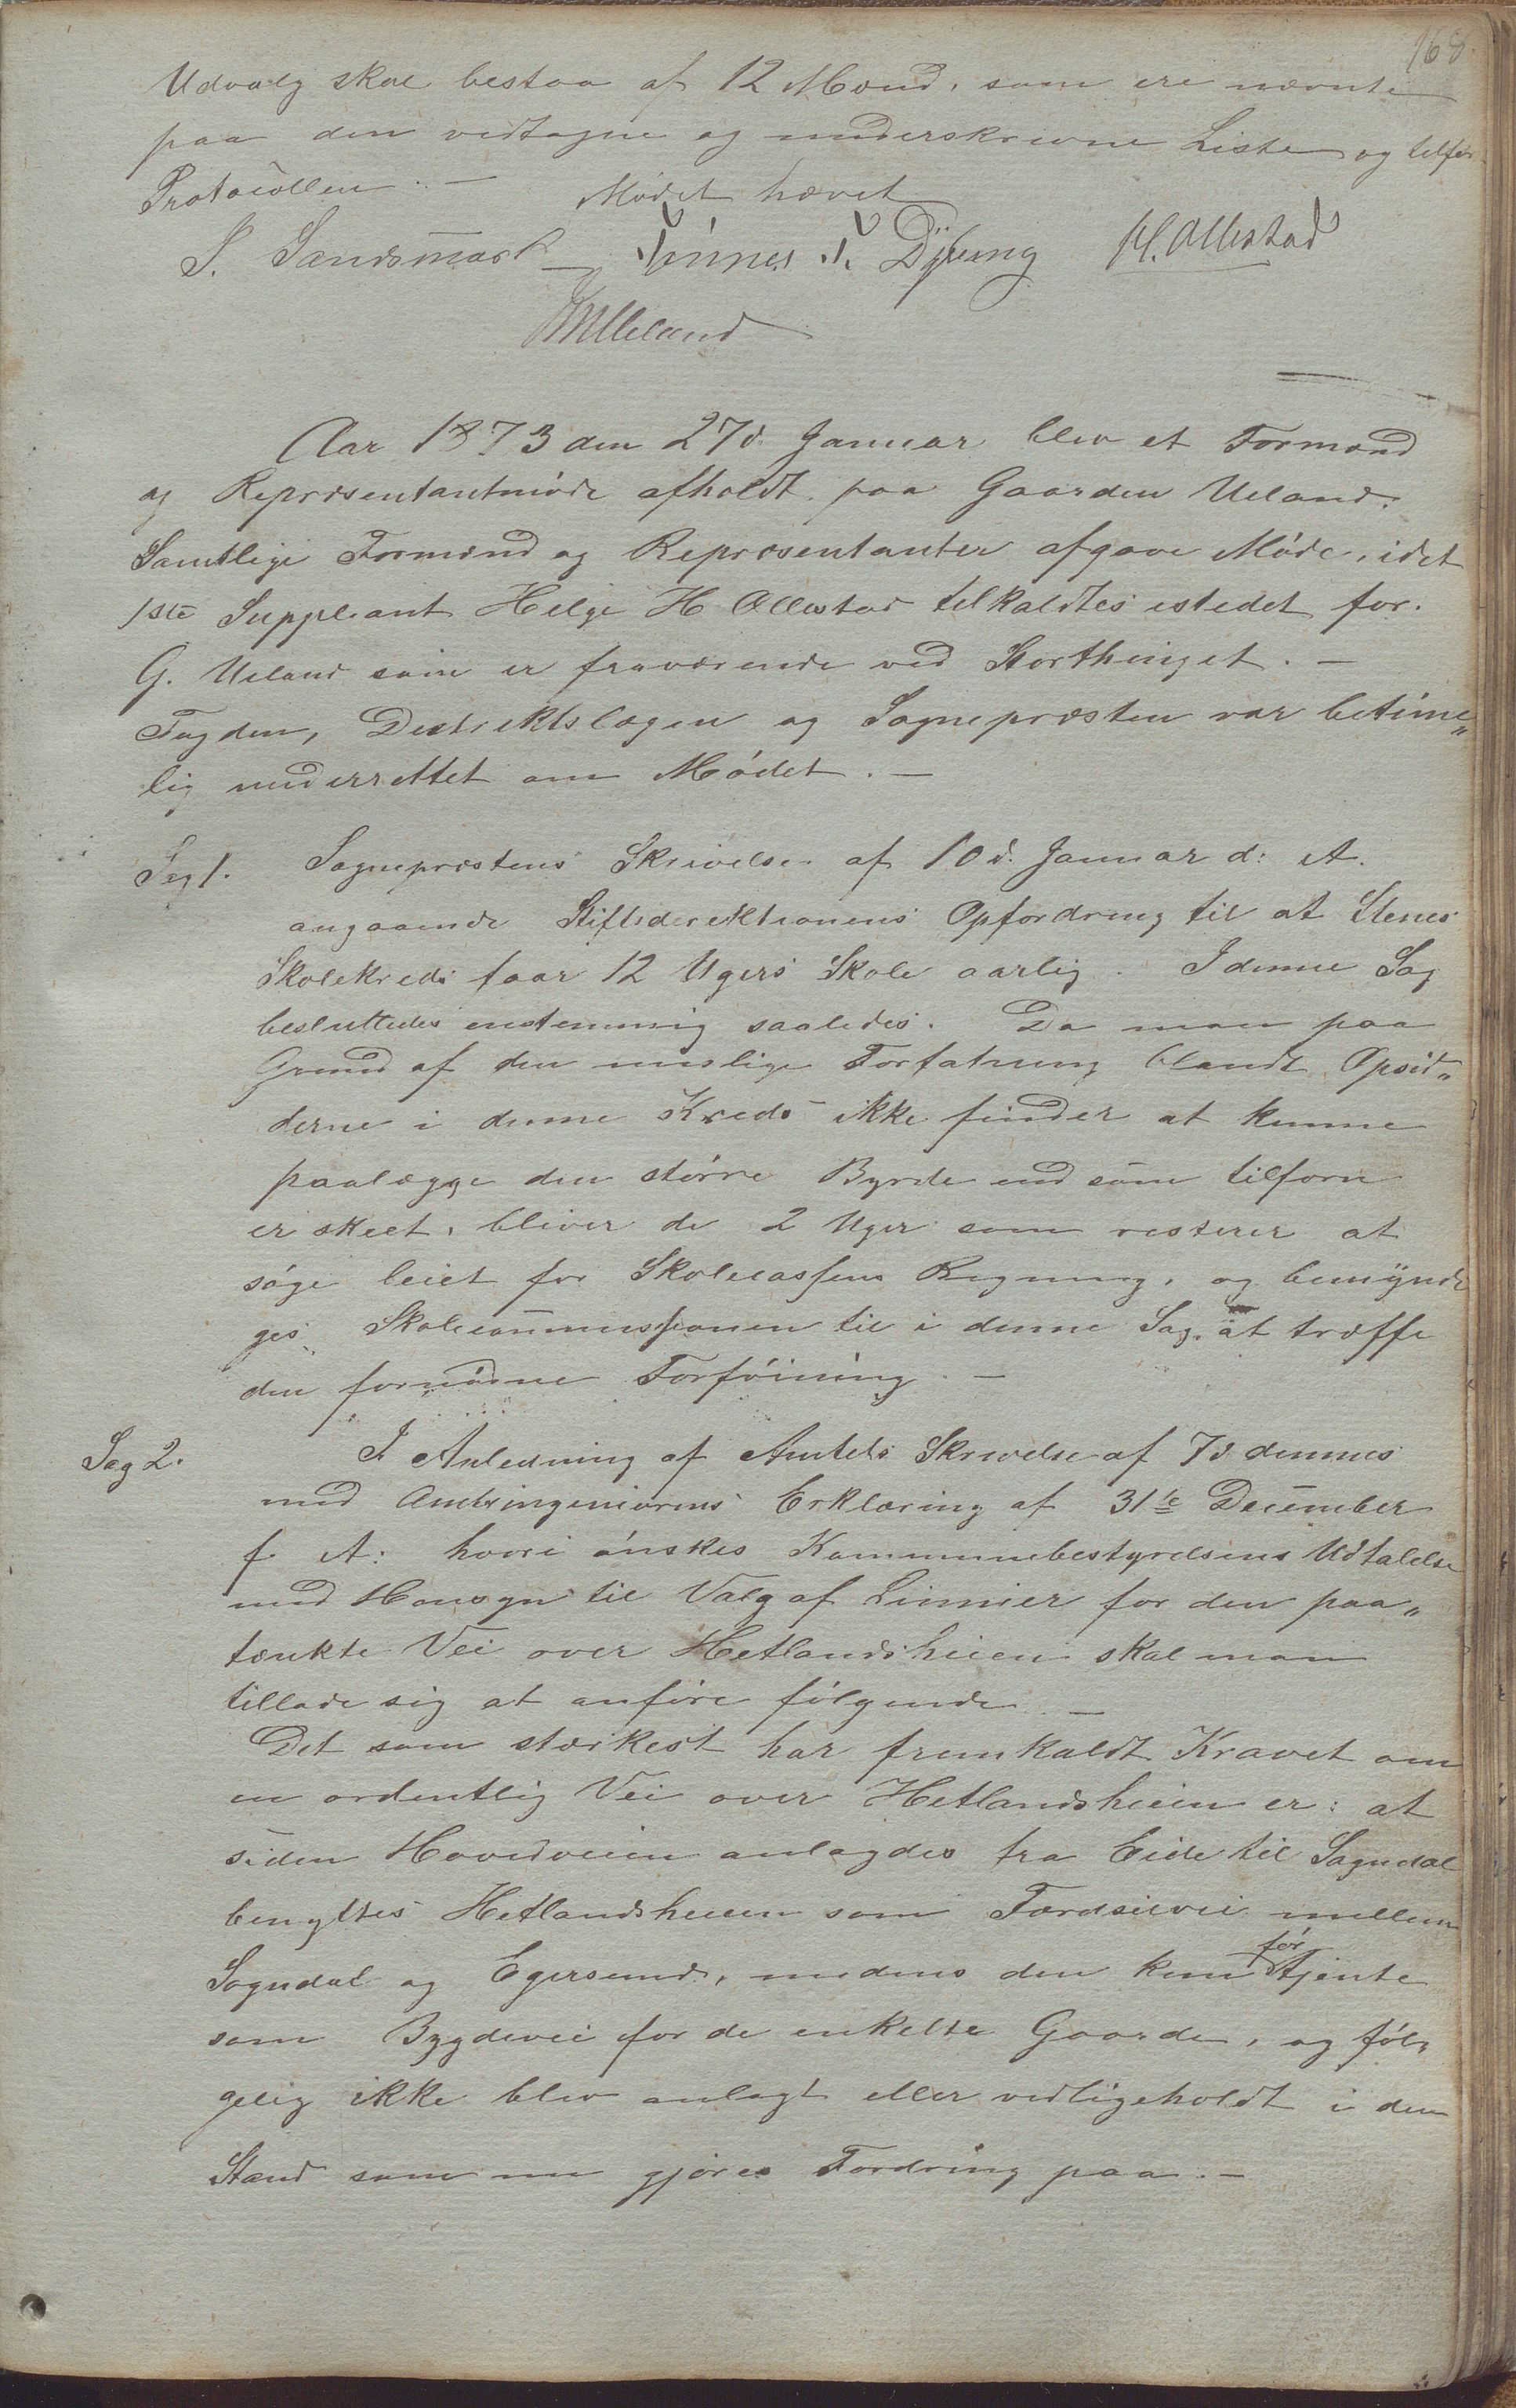 168
Udvalg skal bestaa af 12 Mænd, som ere nævnte
paa den vedtagne og underskrevne Liste og tilfør
Protocollen. —
Mødet hævet
S. Sandsmark Tønnes T. Dybing H. Ollestad
Aar 1873 den 27d. Januar blev et Formænd
og Repræsentantmøde afholdt paa Gaarden Ueland.
Samtlige Formænd og Repræsentanter afgave Møde, idet
1ste Suppleant Helge H Ollestad tilkaldtes istedet for.
G. Ueland som er fraværende ved Storthinget. —
Fogden, Distriktslægen og Sognepræsten var betime„
lig underrettet om Mødet. —
Sag 1. Sognepræstens Skrivelse af 10d. Januar d: A.
angaaende Stiftsdirektionens Opfordring til at Stenes
Skolekreds faar 12 Ugers Skole aarlig. I denne Sag
besluttedes enstemmig saaledes. Da man paa
Grund af den Forfatning blandt Opsid„
derne i denne Kreds ikke finder at kunne
paalægge den større Byrde end som tilforn
er skeet, bliver de 2 Uger som resterer at
søge leiet for Skolecassens Regning, og bemynde
ges Skolecommissionen til i denne Sag at træffe
den fornødne Forføining. —
Sag 2. I Anledning af Amtets Skrivelse af 7d dennes
med Amtsingeniørens Erklæring af 31te December
f A: hvori ønskes Kommunebestyrelsens Udtalelse
med Hensyn til Valg af Linnier for den paa„
tænkte Vei over Hetlandsheien skal man
tillade sig at anføre følgende. —
Det som stærkest har fremkaldt Kravet om
en ordentlig Vei over Hetlandsheien er: at
siden Hovedveien anlagdes fra Eide til Sogndal
benyttes Hetlandsheien som Færdselvei mellem
Sogndal og Egersund, medens den kun før tjente
som Bygdevei for de enkelte Gaarde, og føl„
gelig ikke blev anlagt eller vedligeholdt i den
Stand som nu gjøres Fordring paa. —